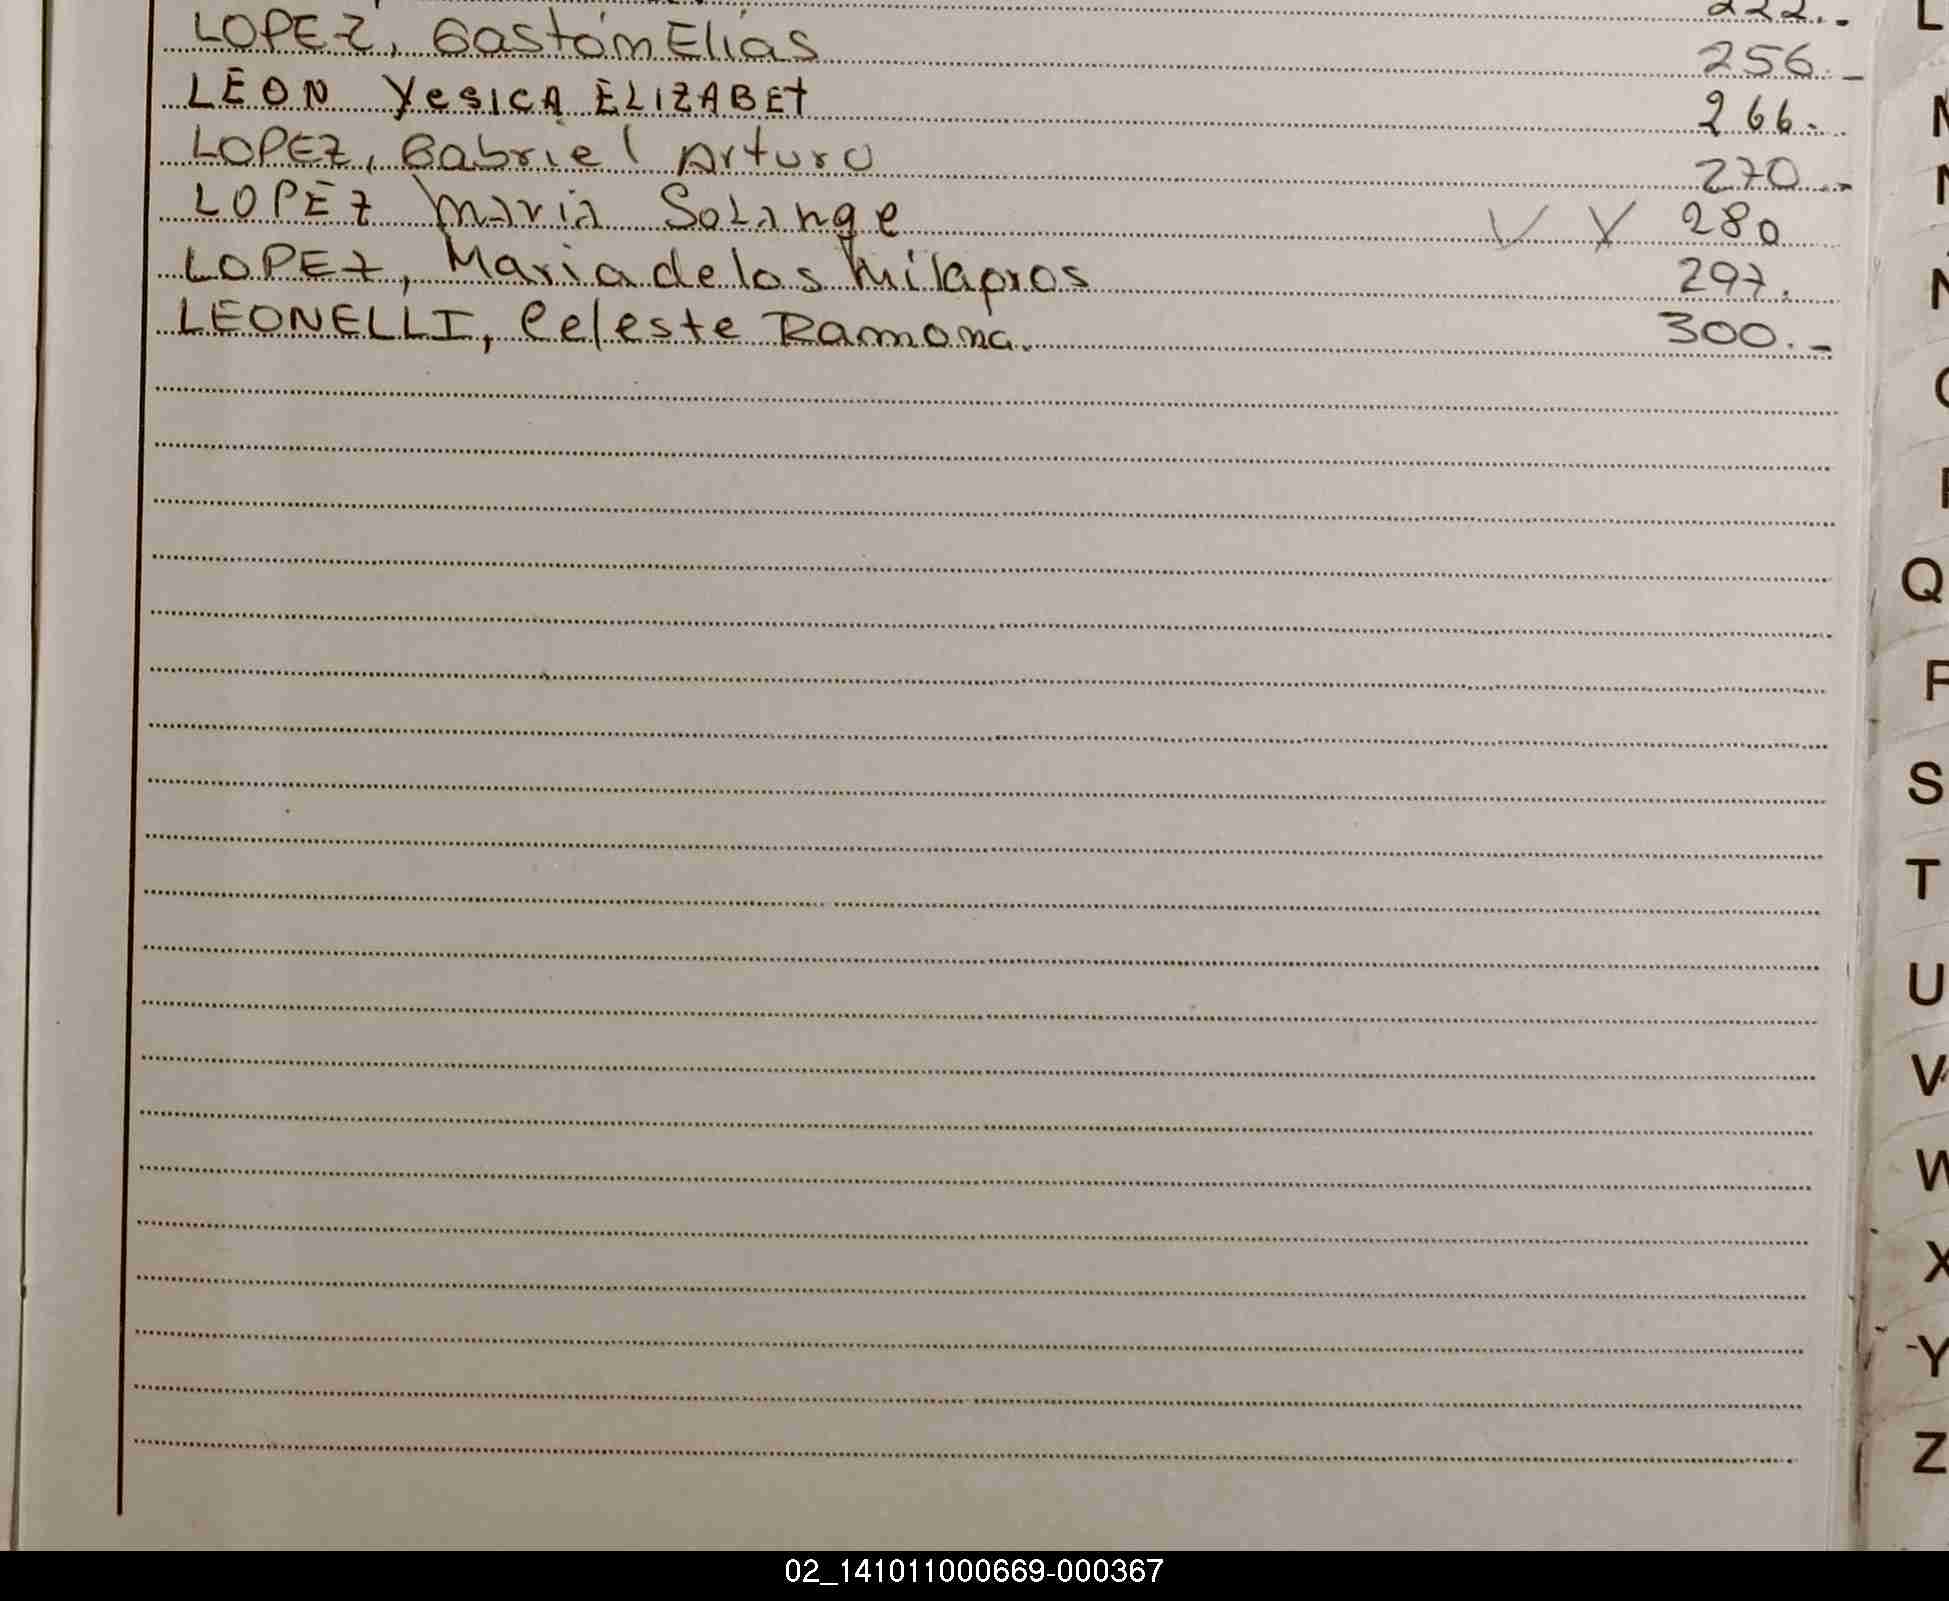 222.-
LOPEZ, Gastón Elías 256.-
LEON YesICA ELIZABEt 266.-
LOPEZ, Gabriel Arturo 270.-
LOPEZ Maria Solange 280
LOPEZ, Maria de los Milagros 297.
LEONELLI, Celeste Ramona. 300.-
L
Q
S
T
U
V
W
X
Y
Z
02_141011000669-000367